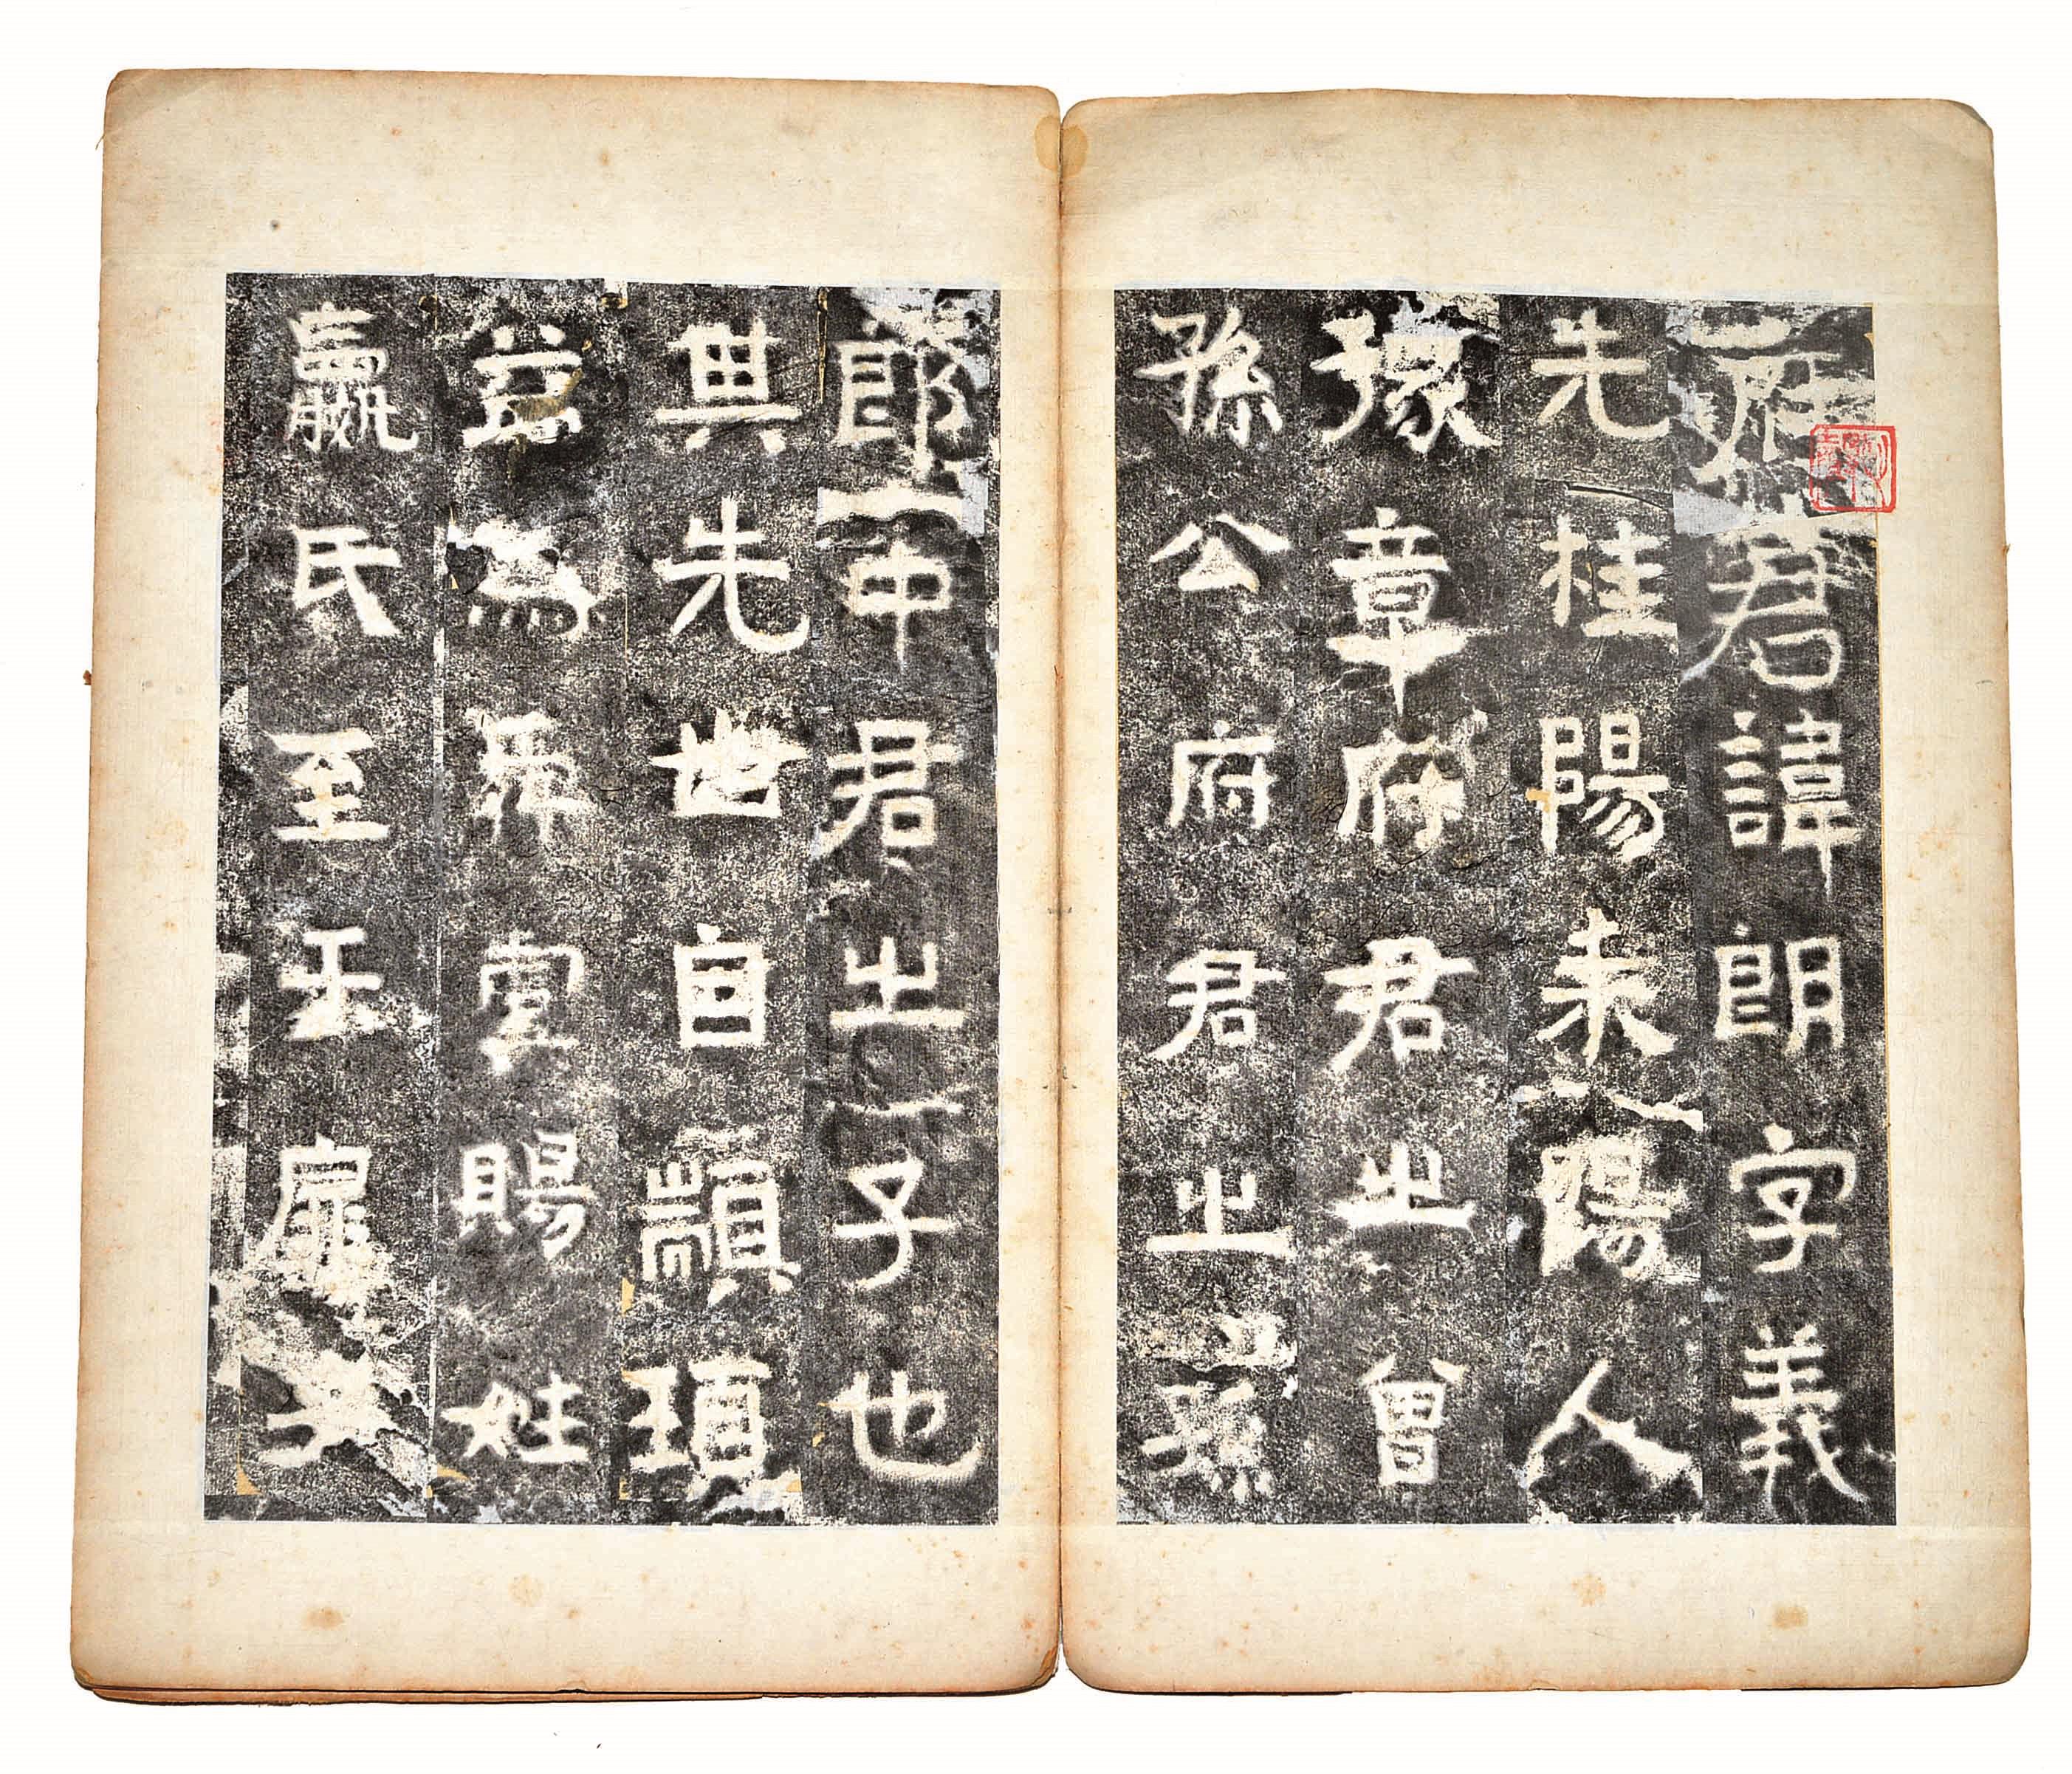 府君諱朗字義
先桂陽耒陽人
豫章府君之曾
孫公府君之孫
郎中君之子也
其先世自顓頊
益為舜賜姓
嬴民至王扉